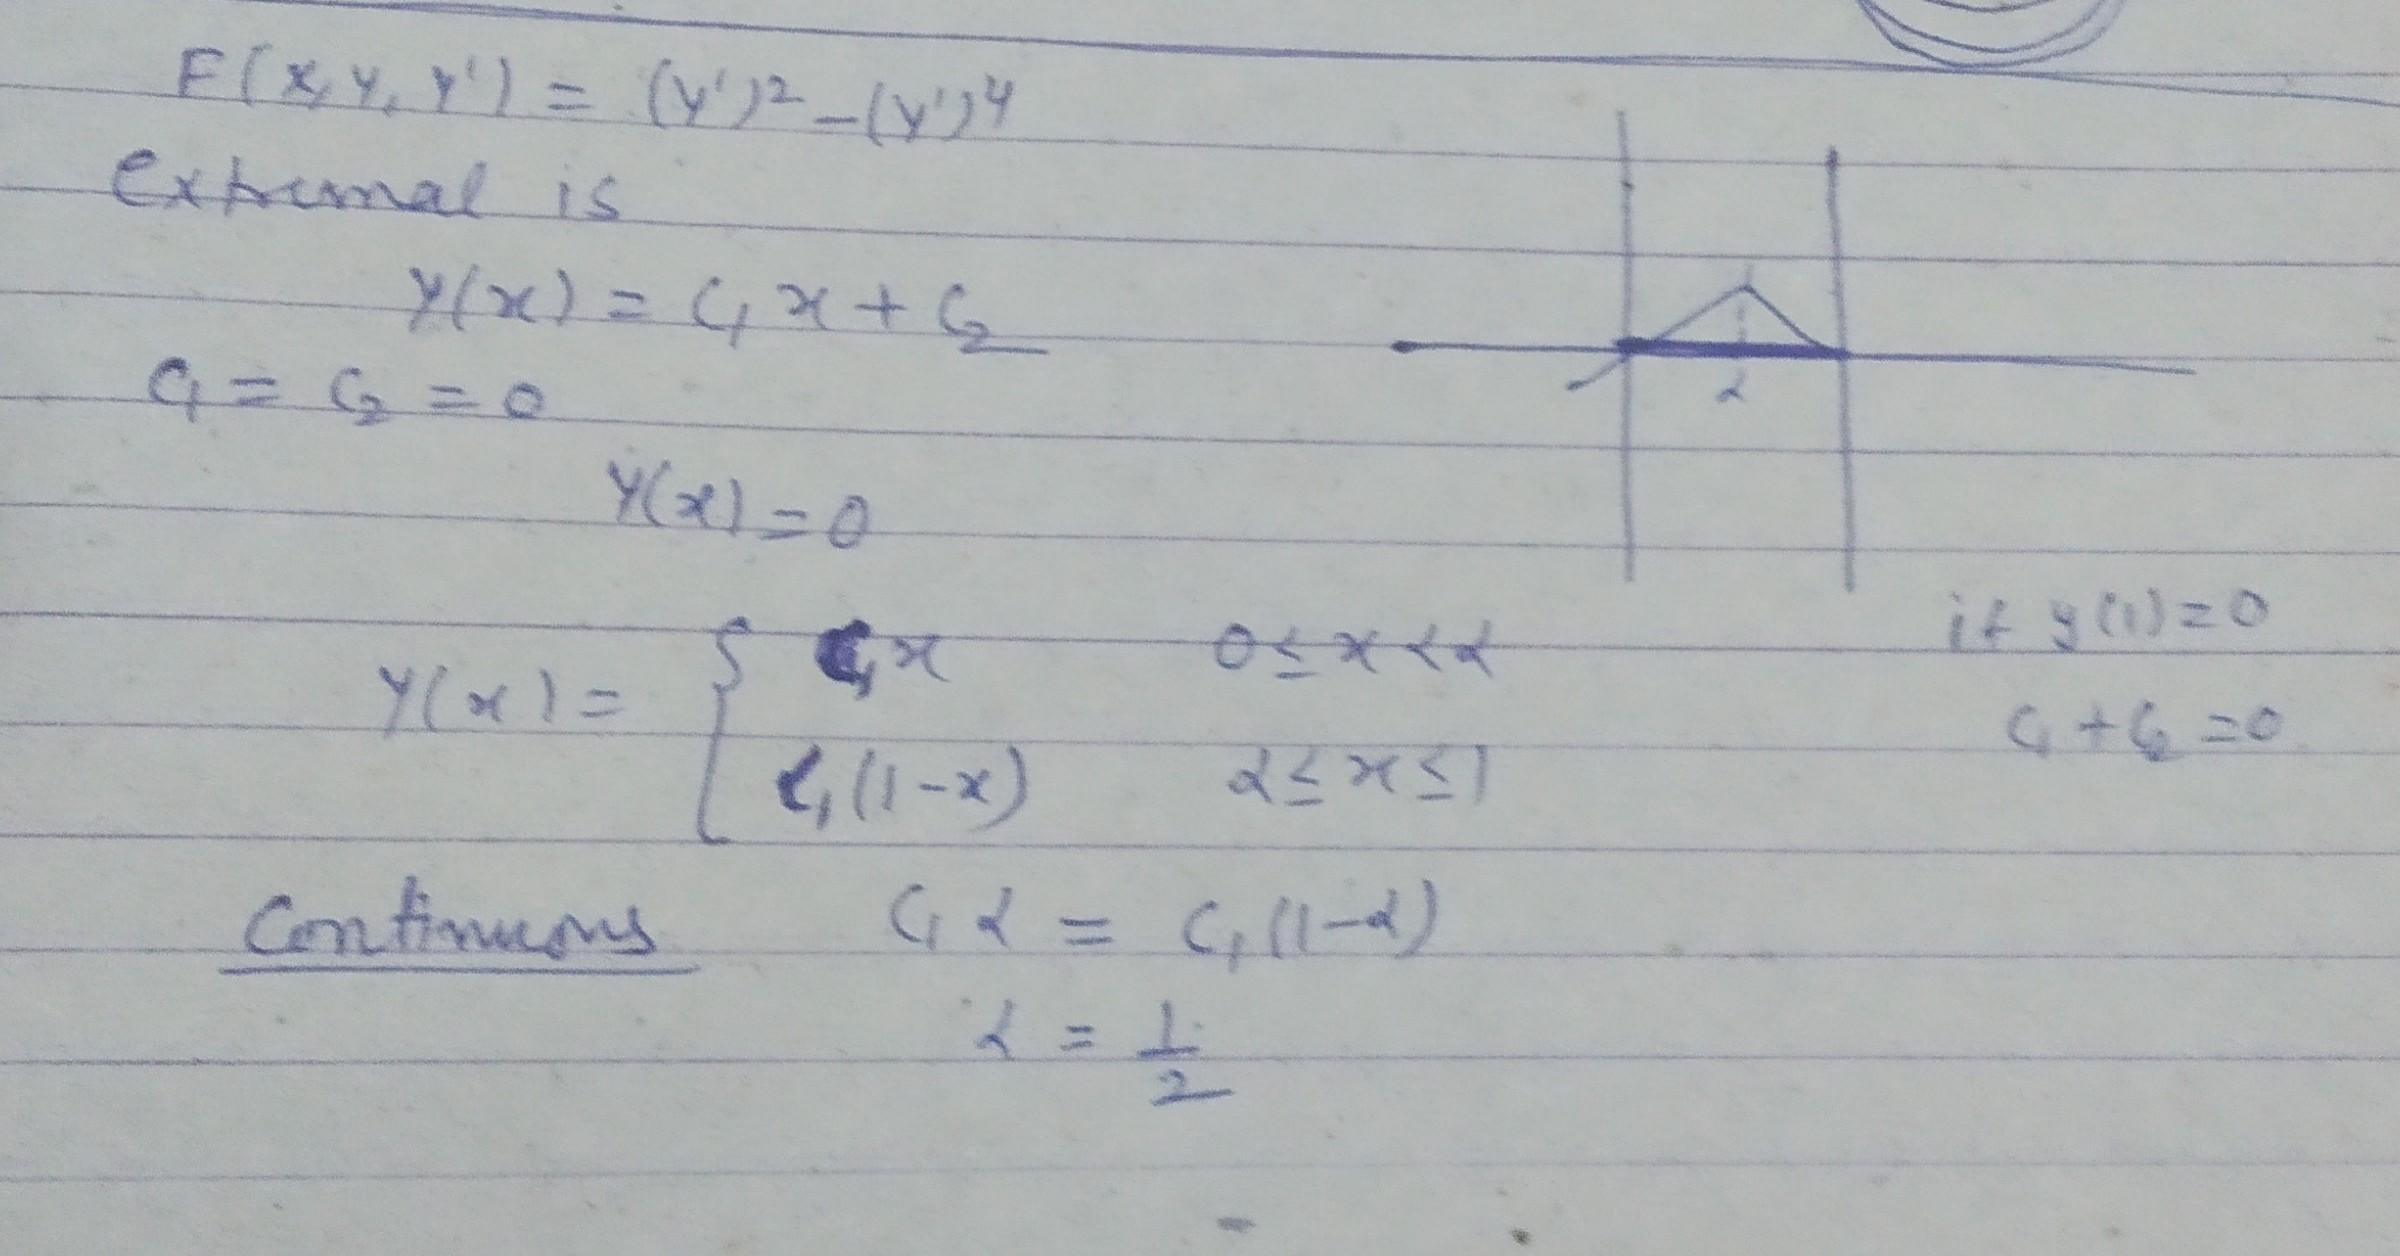 F(x, y, y') = (y')² – (y')⁴
Extremal is
y(x) = C₁x + C₂
C₁ = C₂ = 0
α
y(x) = 0
if y(1) = 0
y(x) = { C₁x 0 ≤ x < α
C₁ + C₂ = 0
C₁(1-x) α ≤ x ≤ 1
Continuous C₁α = C₁(1-α)
α = 1/2